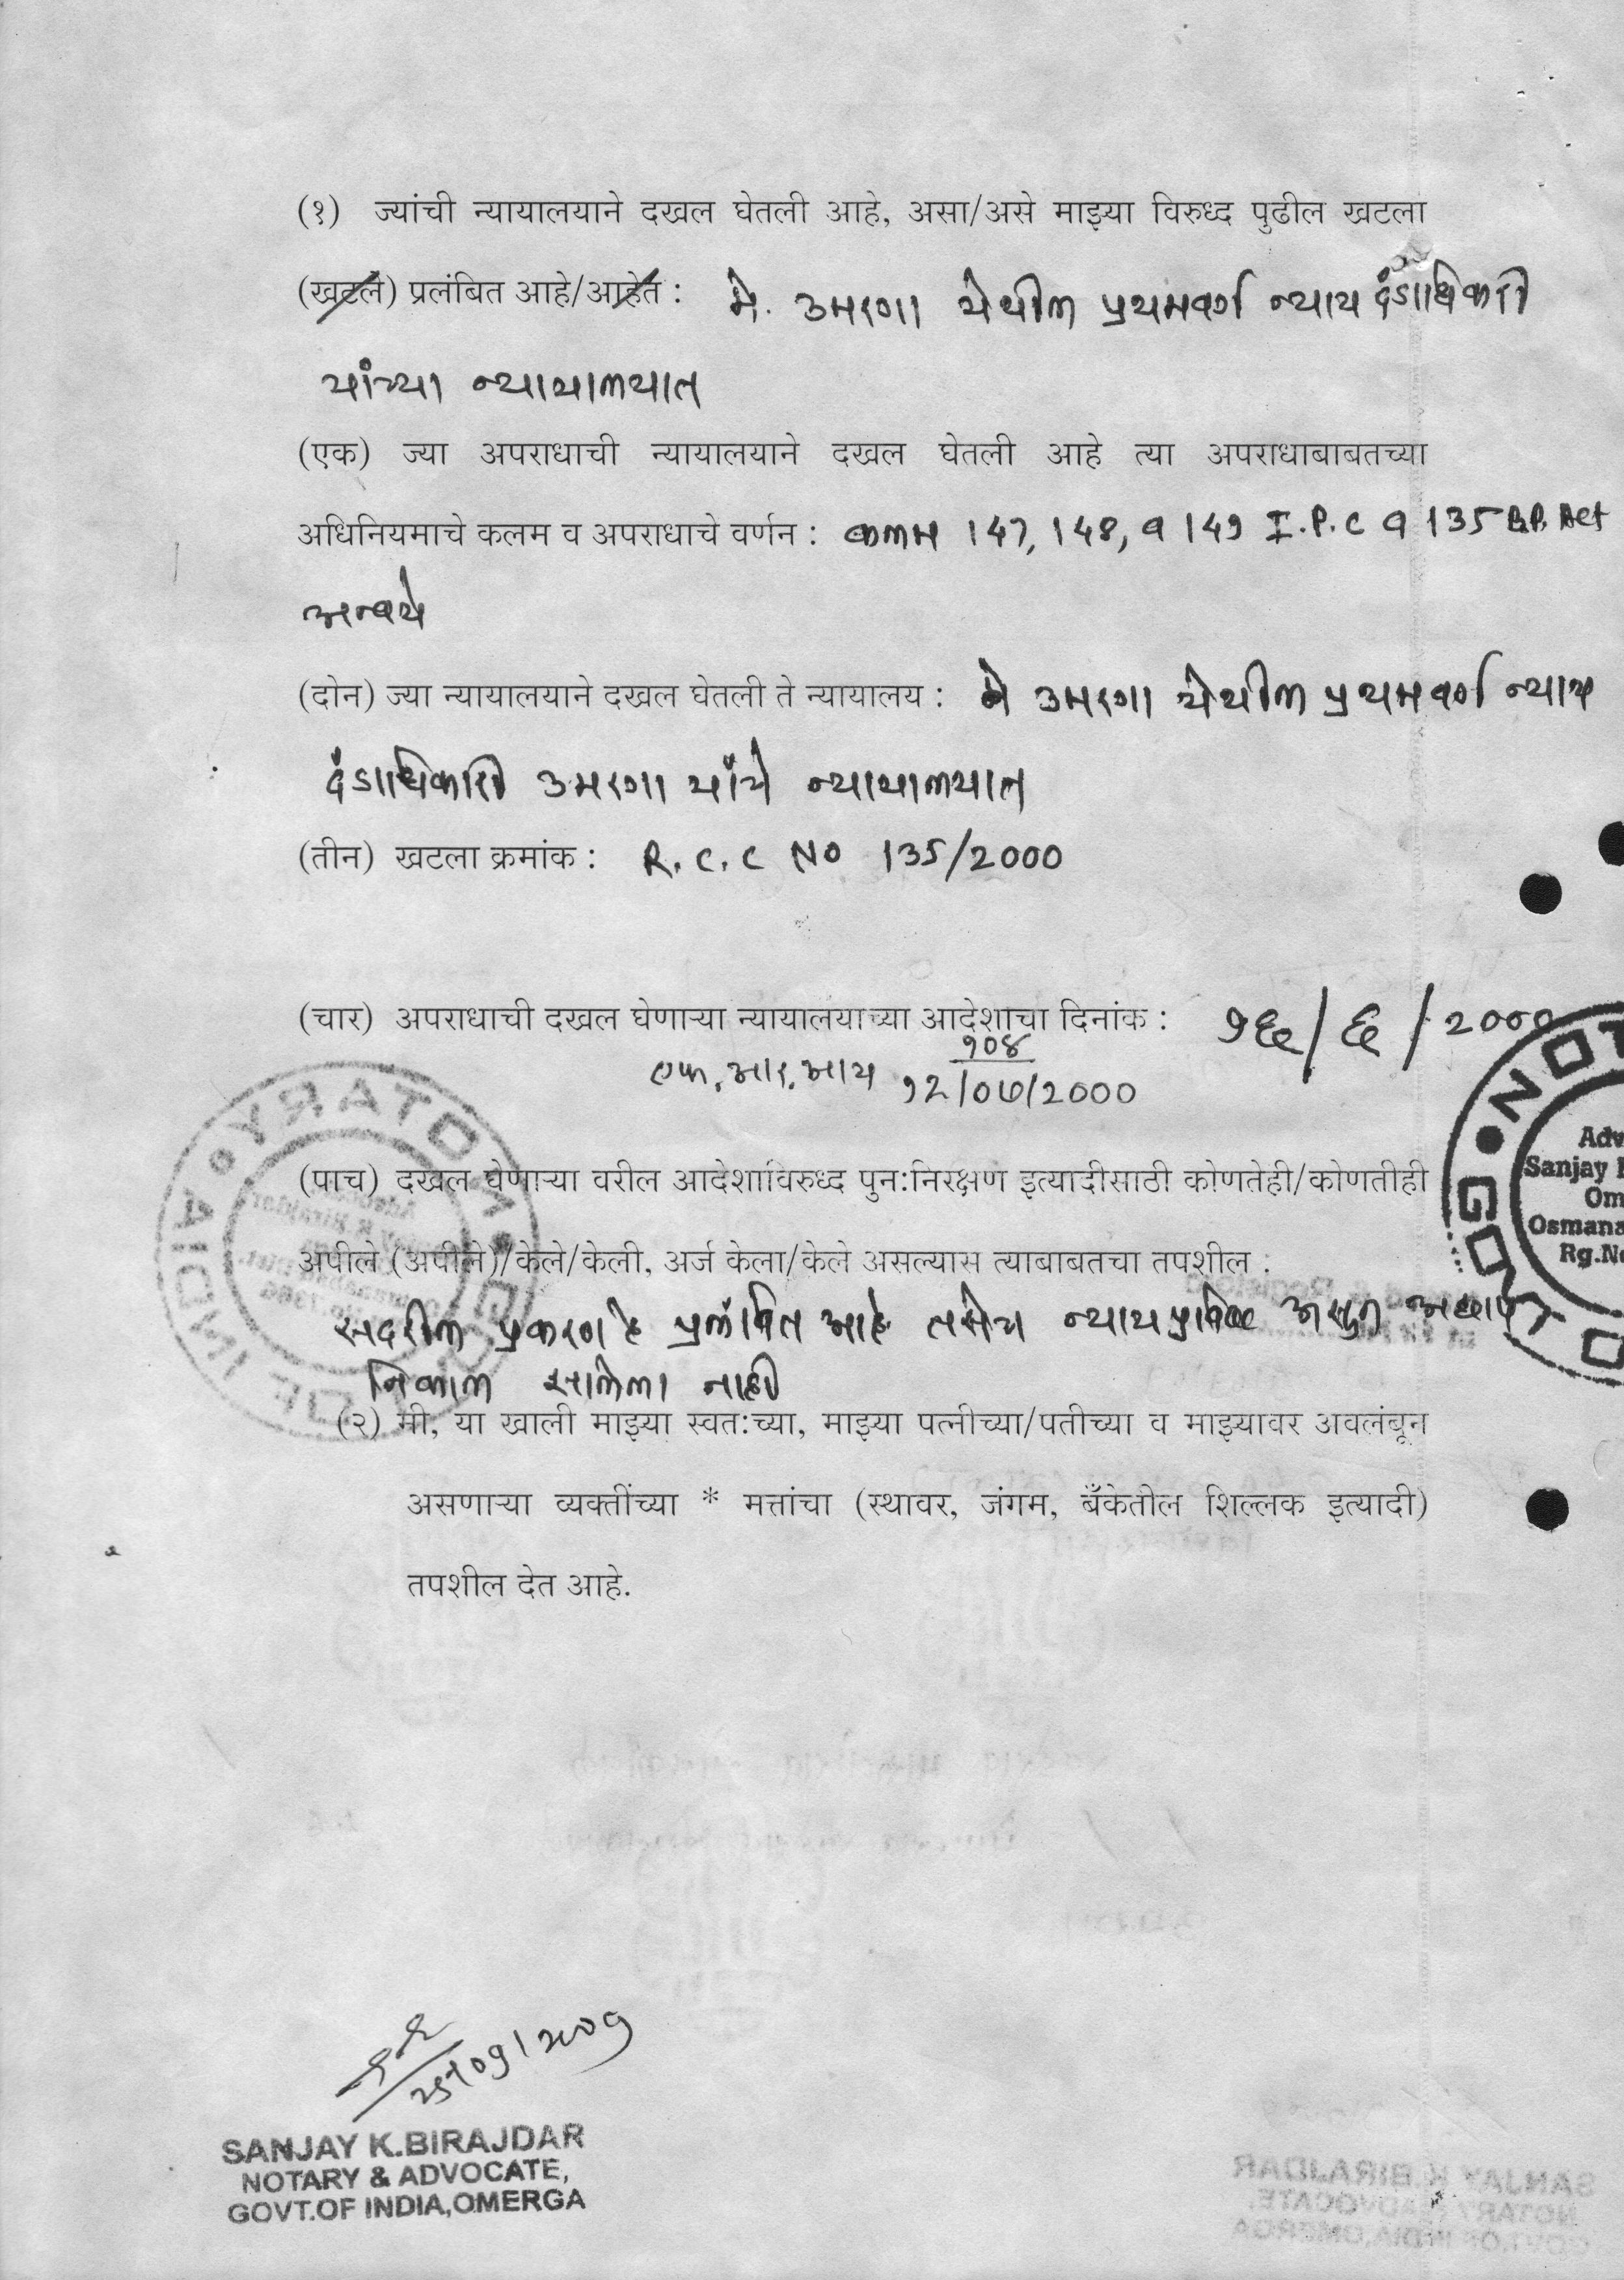 (१) ज्यांची न्यायालयाने दखल घेतली आहे, असा/असे माझ्या विरुध्द पुढील खटला
(खटले) प्रलंबित आहे/आहेत : मे. उमरगा येथील प्रथमवर्ग न्याय दंडाधिकारी
यांच्या न्यायालयात
(एक) ज्या अपराधाची न्यायालयाने दखल घेतली आहे त्या अपराधाबाबतच्या
अधिनियमाचे कलम व अपराधाचे वर्णन : कलम 147, 148, व 149 I.P.C व 135 B.P. Act
अन्वये
(दोन) ज्या न्यायालयाने दखल घेतली ते न्यायालय : मे उमरगा येथील प्रथमवर्ग न्याय
दंडाधिकारी उमरगा यांचे न्यायालयात
(तीन) खटला क्रमांक : R.C.C No 135/2000
(चार) अपराधाची दखल घेणाऱ्या न्यायालयाच्या आदेशाचा दिनांक : १६/६/2000
एफ.आर.आय १०४
१2/०७/2000
(पाच) दखल घेणाऱ्या वरील आदेशाविरुध्द पुन:निरक्षण इत्यादीसाठी कोणतेही/कोणतीही
अपीले (अपीले)/केले/केली, अर्ज केला/केले असल्यास त्याबाबतचा तपशील :
सदरील प्रकरण हे प्रलंबित आहे तसेच न्याय प्रविष्ठ असुन अद्याप
निकाल झालेला नाही
(२) मी, या खाली माझ्या स्वत:च्या, माझ्या पत्नीच्या/पतीच्या व माझ्यावर अवलंबून
असणाऱ्या व्यक्तींच्या * मत्तांचा (स्थावर, जंगम, बँकेतील शिल्लक इत्यादी)
तपशील देत आहे.
NOT
Adv
Sanjay
Om
Osmana
Rg.No
NOTARY
INDIA
25/09/2009
SANJAY K.BIRAJDAR
NOTARY & ADVOCATE,
GOVT.OF INDIA,OMERGA